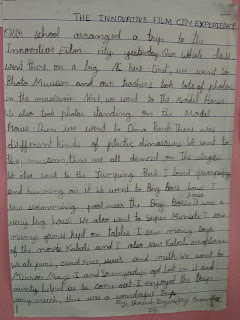 THE INNOVATIVE FILM CITY EXPERIENCE
Our school arranged a trip to the
Innovative Film city yesterday. Our whole class
went there on a big AC bus. First, we went to
Photo Museum and our teachers took lots of photos
in the museum. Next we went to the Model House.
We also took photos standing on the Model
House. Then we went to Dino land. There was
different kinds of plastic dinosaurs. We went to
the museum, there we all danced on the stage.
We also went to the Jumping Park. I loved jumping
and running on it. We went to Big Boss house. I
saw swimming pool near the Big Boss house. It was a
very big house. We also went to Super Minute. I saw
many games kept on tables. I saw many cars
of the movie and I also saw Kabali aeroplane.
We ate puri, curd rice, and milk. We went to
Mirror Maze. I and got lost in it and
aunty helped us to come out. I enjoyed the trip
very much, this was a wonderful trip.
By,